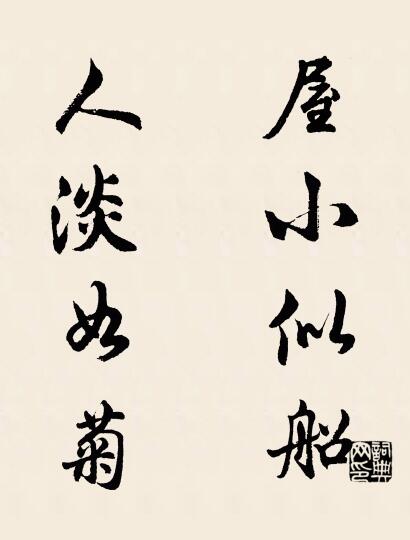 屋小似船
人淡如菊
詞典网印